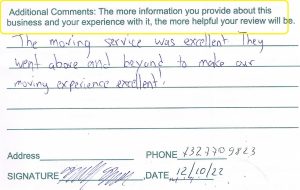 Additional Comments: The more information you provide about this
business and your experience with it, the more helpful your review will be.
The moving service was excellent They
went above and beyond to make our
moving experience excellent!
Address
PHONE 732 770 9823
SIGNATURE ,DATE 12/10/22